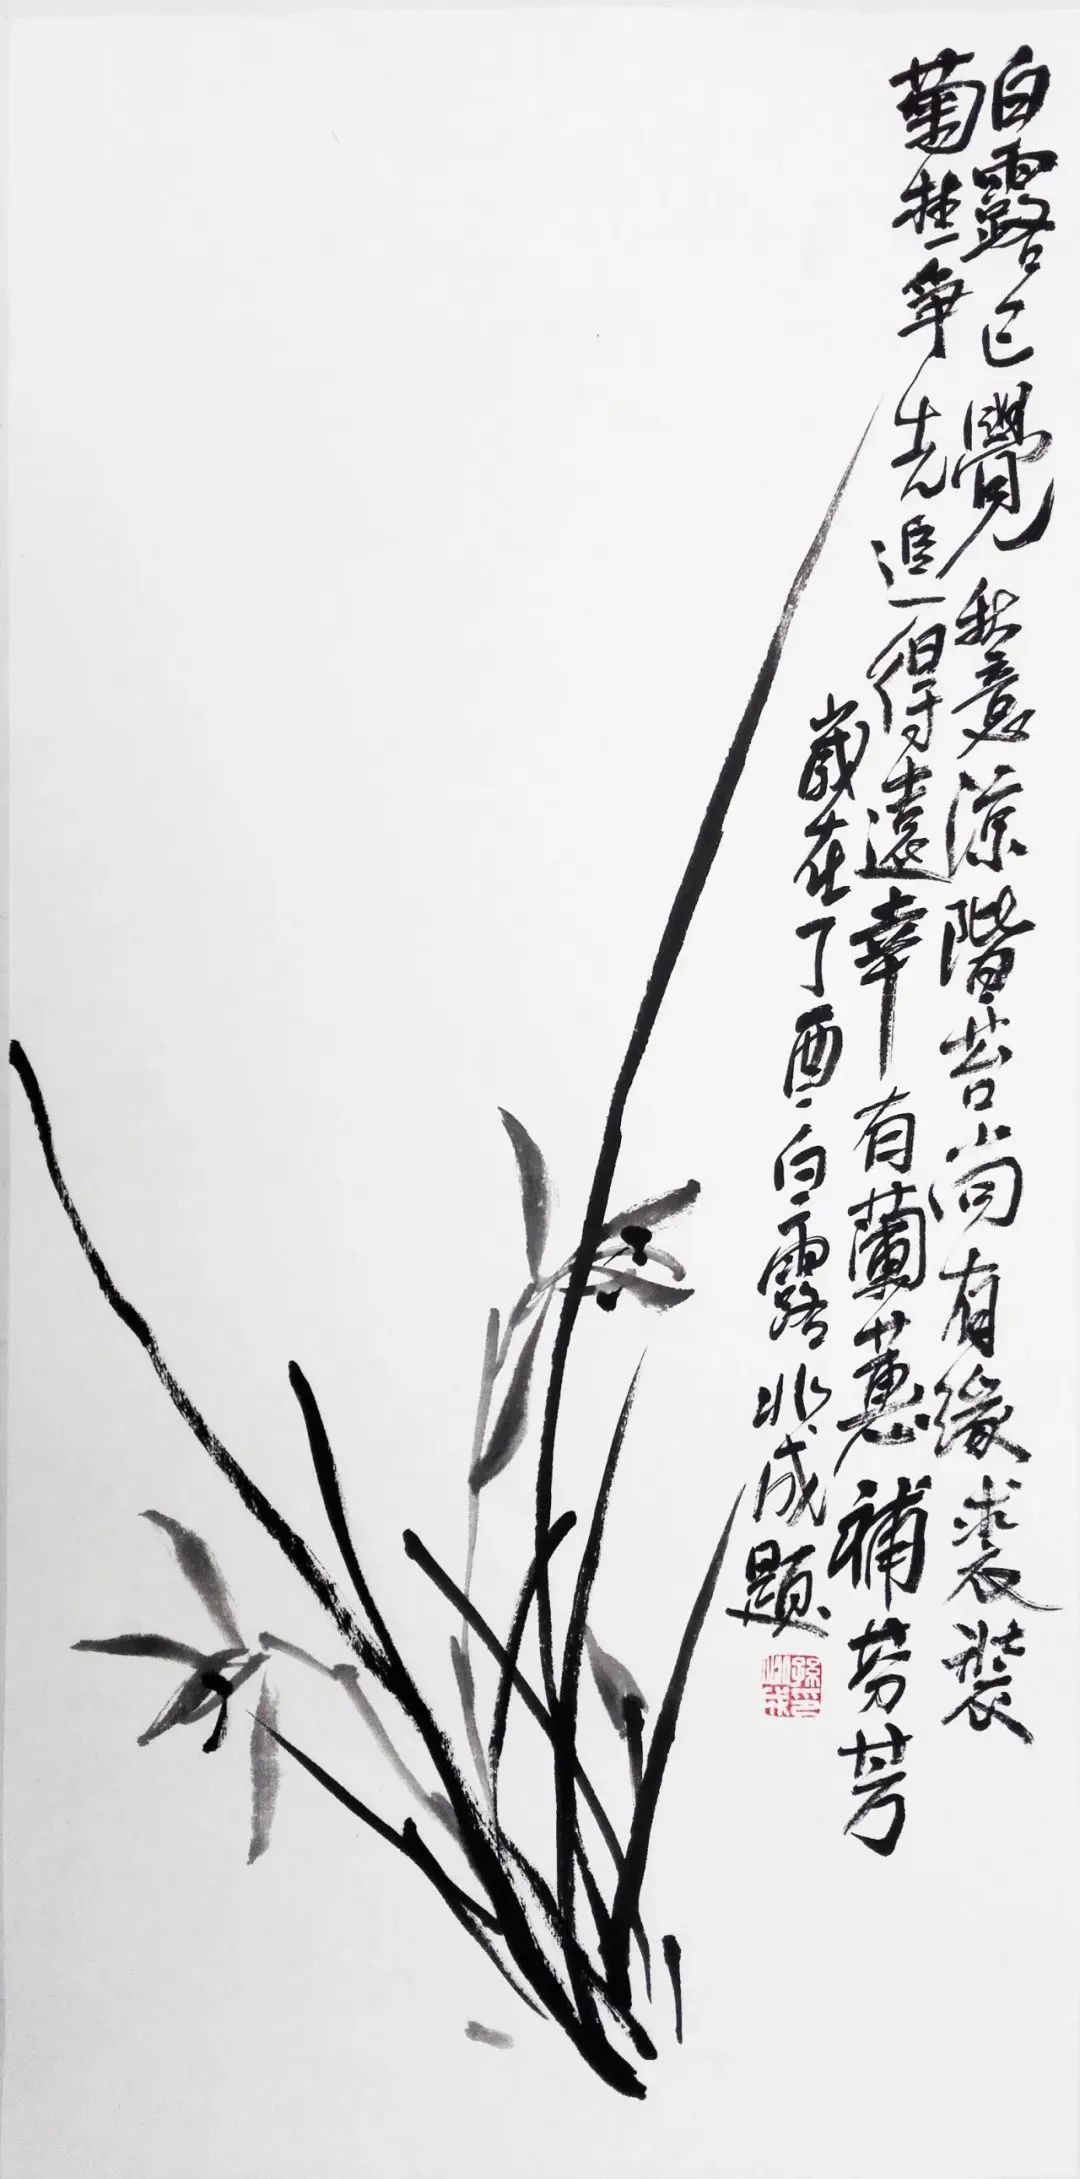 白露已覺秋意涼階苔尚有綠裘裝
菊桂爭先追得遠幸有蘭蕙補芬芳
歲在丁酉白露兆成題
孫印兆成